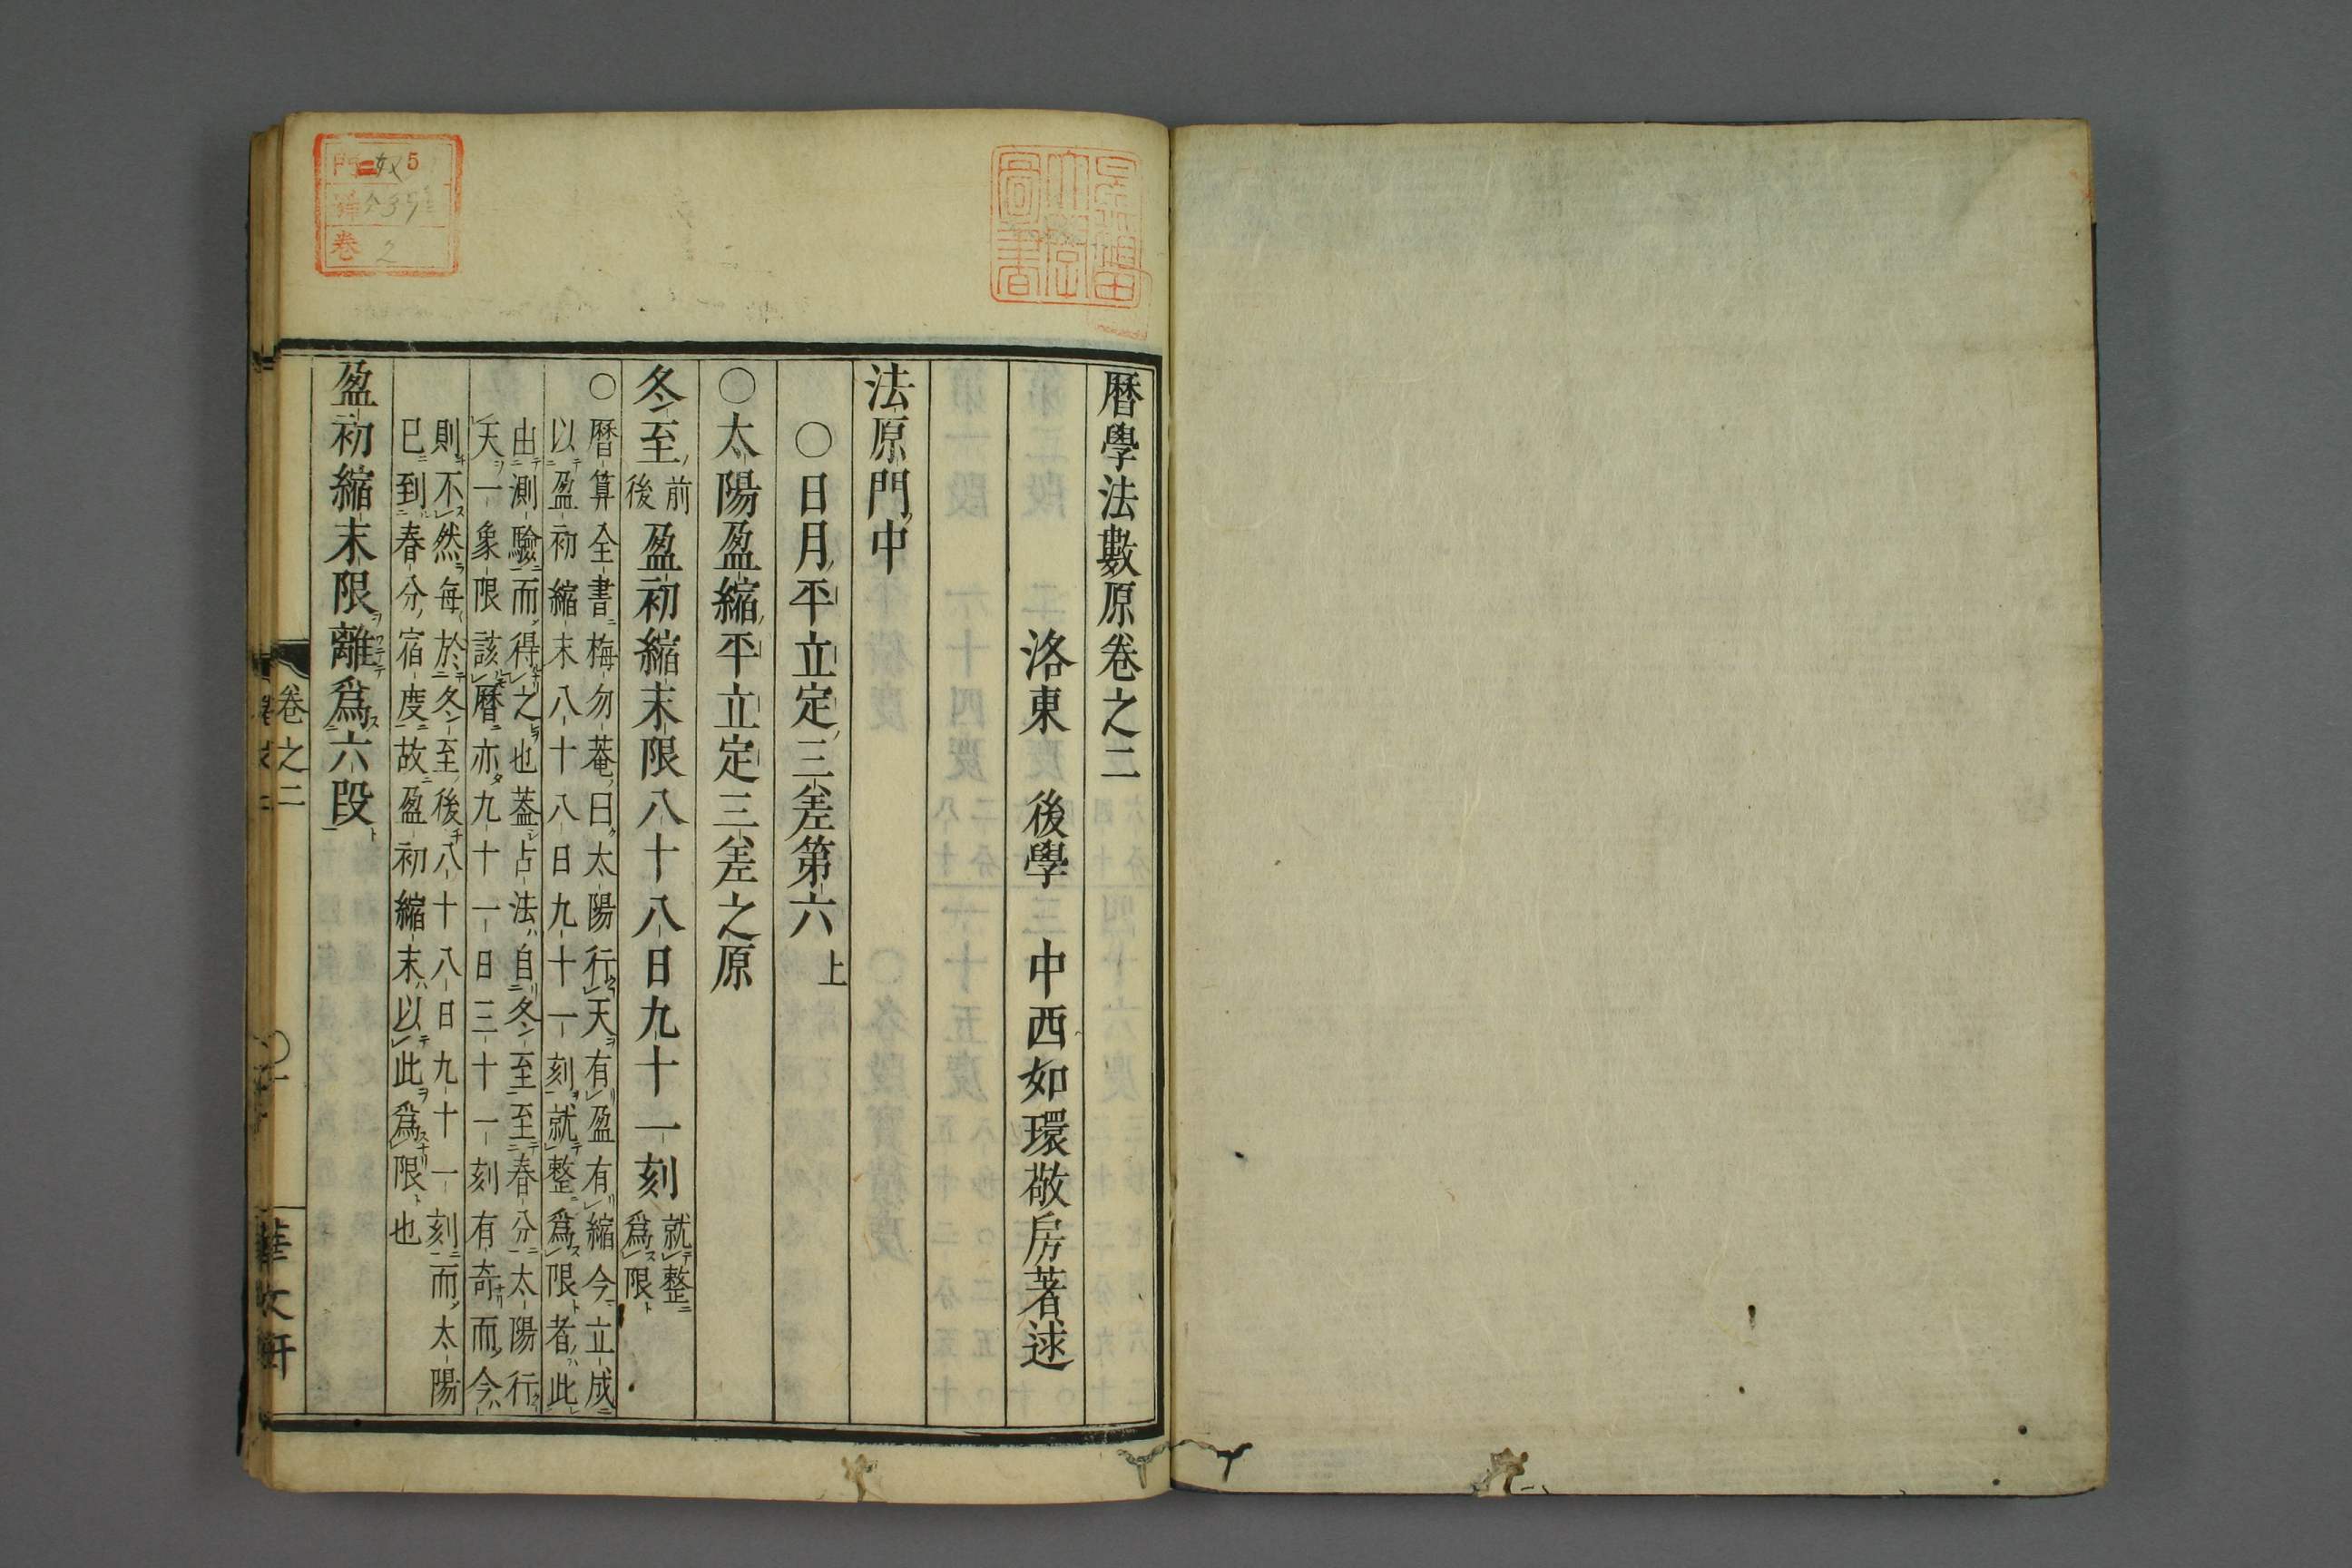 暦學法數原卷之二
洛東 後學 中西如環敬房著述
法原門中
○日月平立定三差第六上
○太陽盈縮平立定三差之原
冬至前後盈初縮末限八十八日九十一刻就整爲限
○暦算全書梅勿菴曰太陽行天有盈有縮今立成
以盈初縮末八十八日九十一刻就整爲限者此
由測驗而得之也蓋占法自冬至至春分太陽行
天一象限該暦亦九十一日三十一刻有奇而今
則不然每於冬至後八十八日九十一刻而太陽
已到春分宿度故盈初縮末以此爲限也
盈初縮末限離爲六段
卷之二
○一
華文軒
早稲田大學圖書
門 ニ 5
卷 2